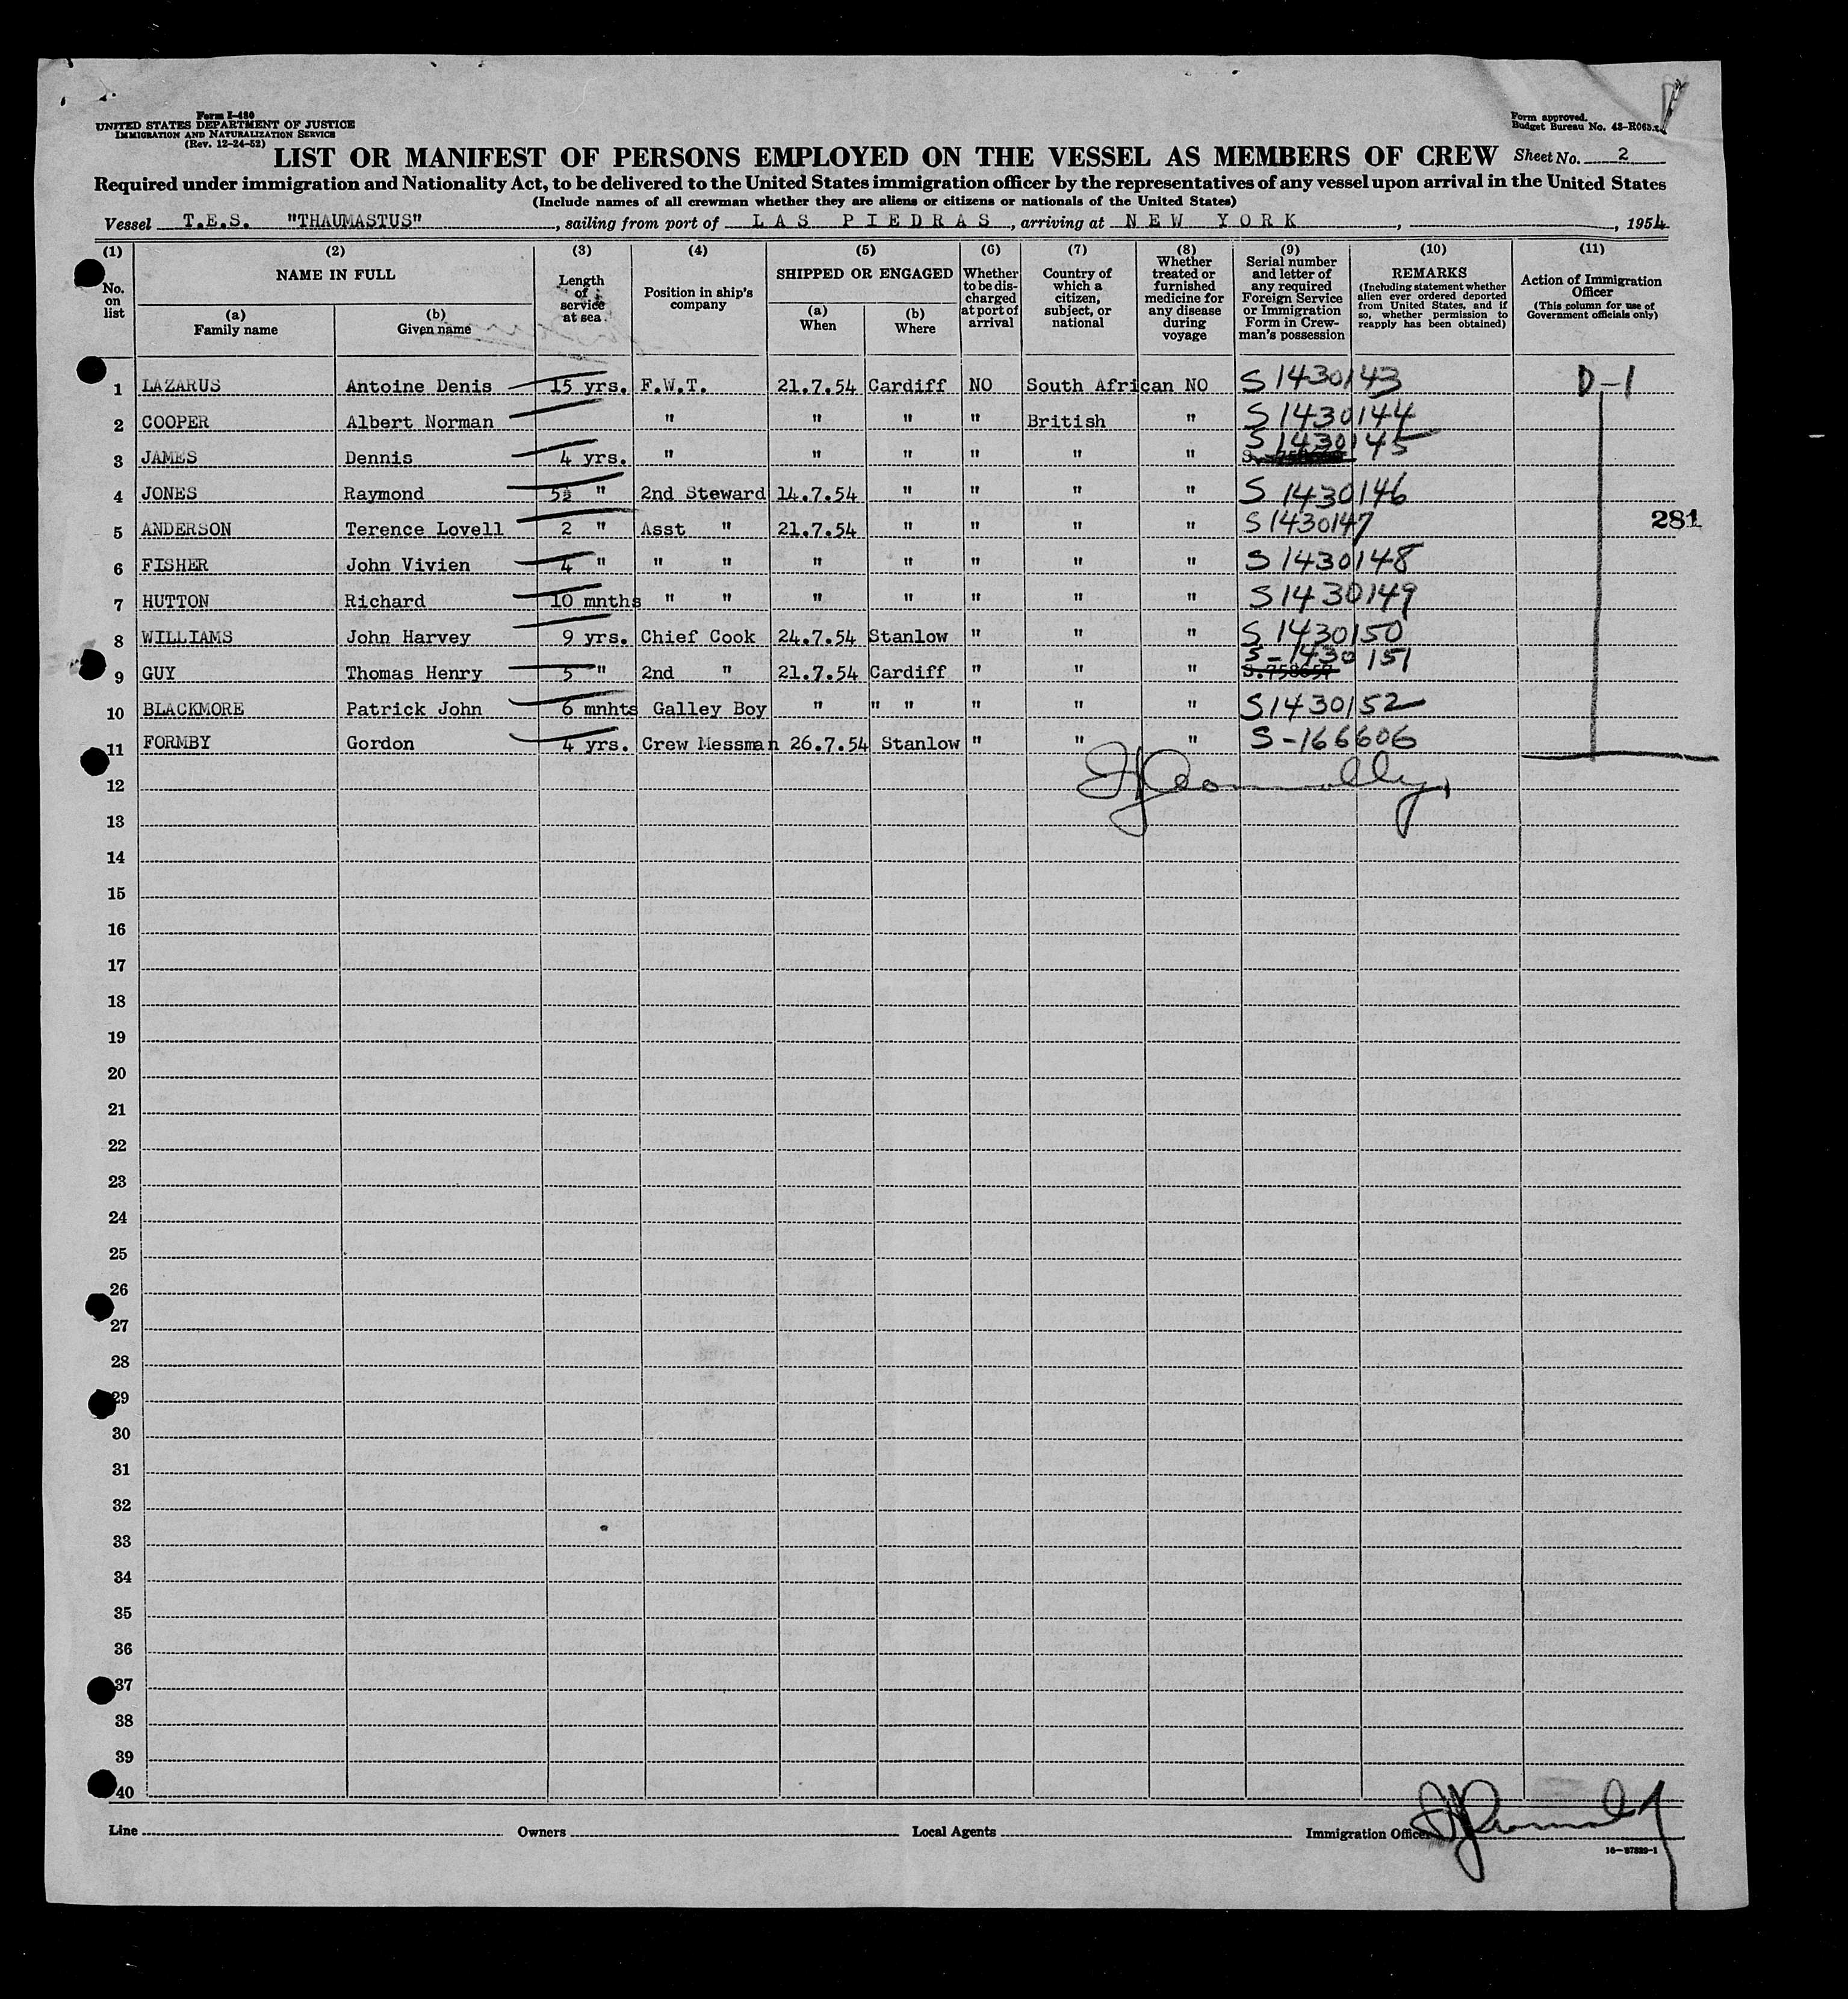 Form I-480
UNITED STATES DEPARTMENT OF JUSTICE
IMMIGRATION AND NATURALIZATION SERVICE
(Rev. 12-24-52)
Form approved.
Budget Bureau No. 43-R065.
LIST OR MANIFEST OF PERSONS EMPLOYED ON THE VESSEL AS MEMBERS OF CREW Sheet No. 2
Required under immigration and Nationality Act, to be delivered to the United States immigration officer by the representatives of any vessel upon arrival in the United States
(Include names of all crewman whether they are aliens or citizens or nationals of the United States)
Vessel T.E.S. "THAUMASTUS", sailing from port of LAS PIEDRAS, arriving at NEW YORK, , 1954
(1) (2) (3) (4) (5) (6) (7) (8) (9) (10) (11)
No. on list
NAME IN FULL
(a) Family name
(b) Given name
Length of service at sea
Position in ship's company
SHIPPED OR ENGAGED
(a) When
(b) Where
Whether to be discharged at port of arrival
Country of which a citizen, subject, or national
Whether treated or furnished medicine for any disease during voyage
Serial number and letter of any required Foreign Service or Immigration Form in Crewman's possession
REMARKS
(Including statement whether alien ever ordered deported from United States, and if so, whether permission to reapply has been obtained)
Action of Immigration Officer
(This column for use of Government officials only)
1 LAZARUS Antoine Denis 15 yrs. F.W.T. 21.7.54 Cardiff NO South African NO S 1430143 D-1
2 COOPER Albert Norman " " " " British " S 1430144
3 JAMES Dennis 4 yrs. " " " " " " S 1430145
4 JONES Raymond 5½ " 2nd Steward 14.7.54 " " " " S 1430146
5 ANDERSON Terence Lovell 2 " Asst " 21.7.54 " " " " S 1430147 281
6 FISHER John Vivien 4 " " " " " " " " S 1430148
7 HUTTON Richard 10 mnths " " " " " " " S 1430149
8 WILLIAMS John Harvey 9 yrs. Chief Cook 24.7.54 Stanlow " " " S 1430150
9 GUY Thomas Henry 5 " 2nd " 21.7.54 Cardiff " " " S.758657 S-1430151
10 BLACKMORE Patrick John 6 mnhts Galley Boy " " " " " " S1430152
11 FORMBY Gordon 4 yrs. Crew Messman 26.7.54 Stanlow " " " S-166606
12
13
14
15
16
17
18
19
20
21
22
23
24
25
26
27
28
29
30
31
32
33
34
35
36
37
38
39
40
Line Owners Local Agents Immigration Officer
16-67829-1